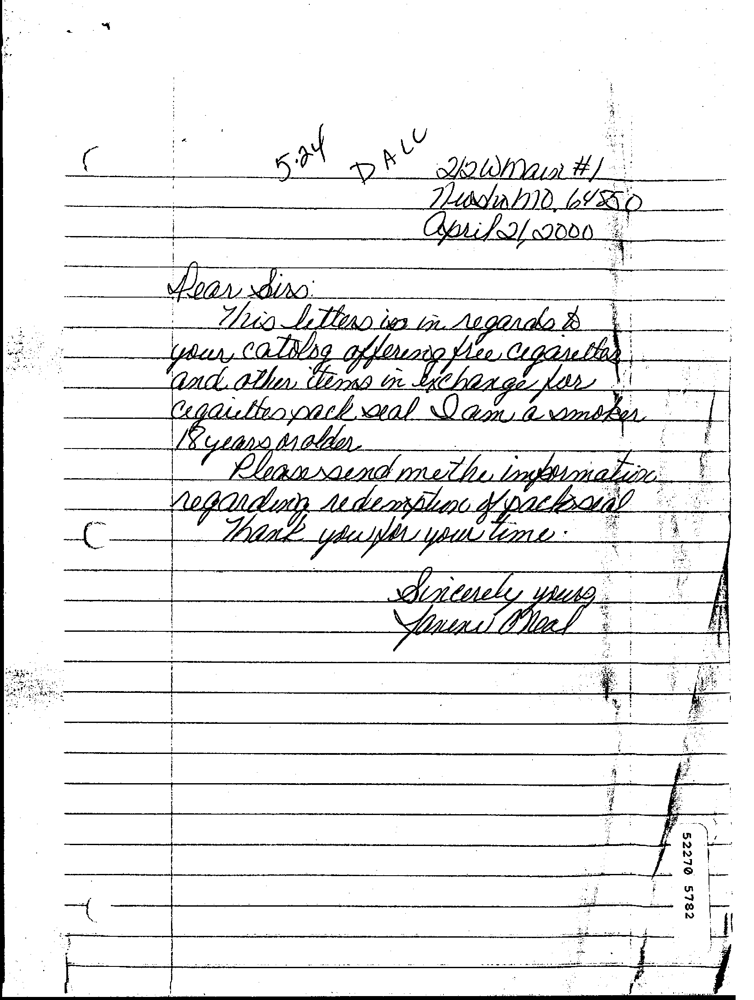 5-24 DALC
212 W Main #1
Neosho MO. 64850
April 21, 2000
Dear Sirs:
This letters is in regards to
your catolog offering free cigarettes
and other items in exchange for
cigarettes pack seal. I am a smoker
18 years or older
Please send me the information
regarding redemption of packs seal
Thank you for your time.
Sincerely yours
O'Neal
52270 5782